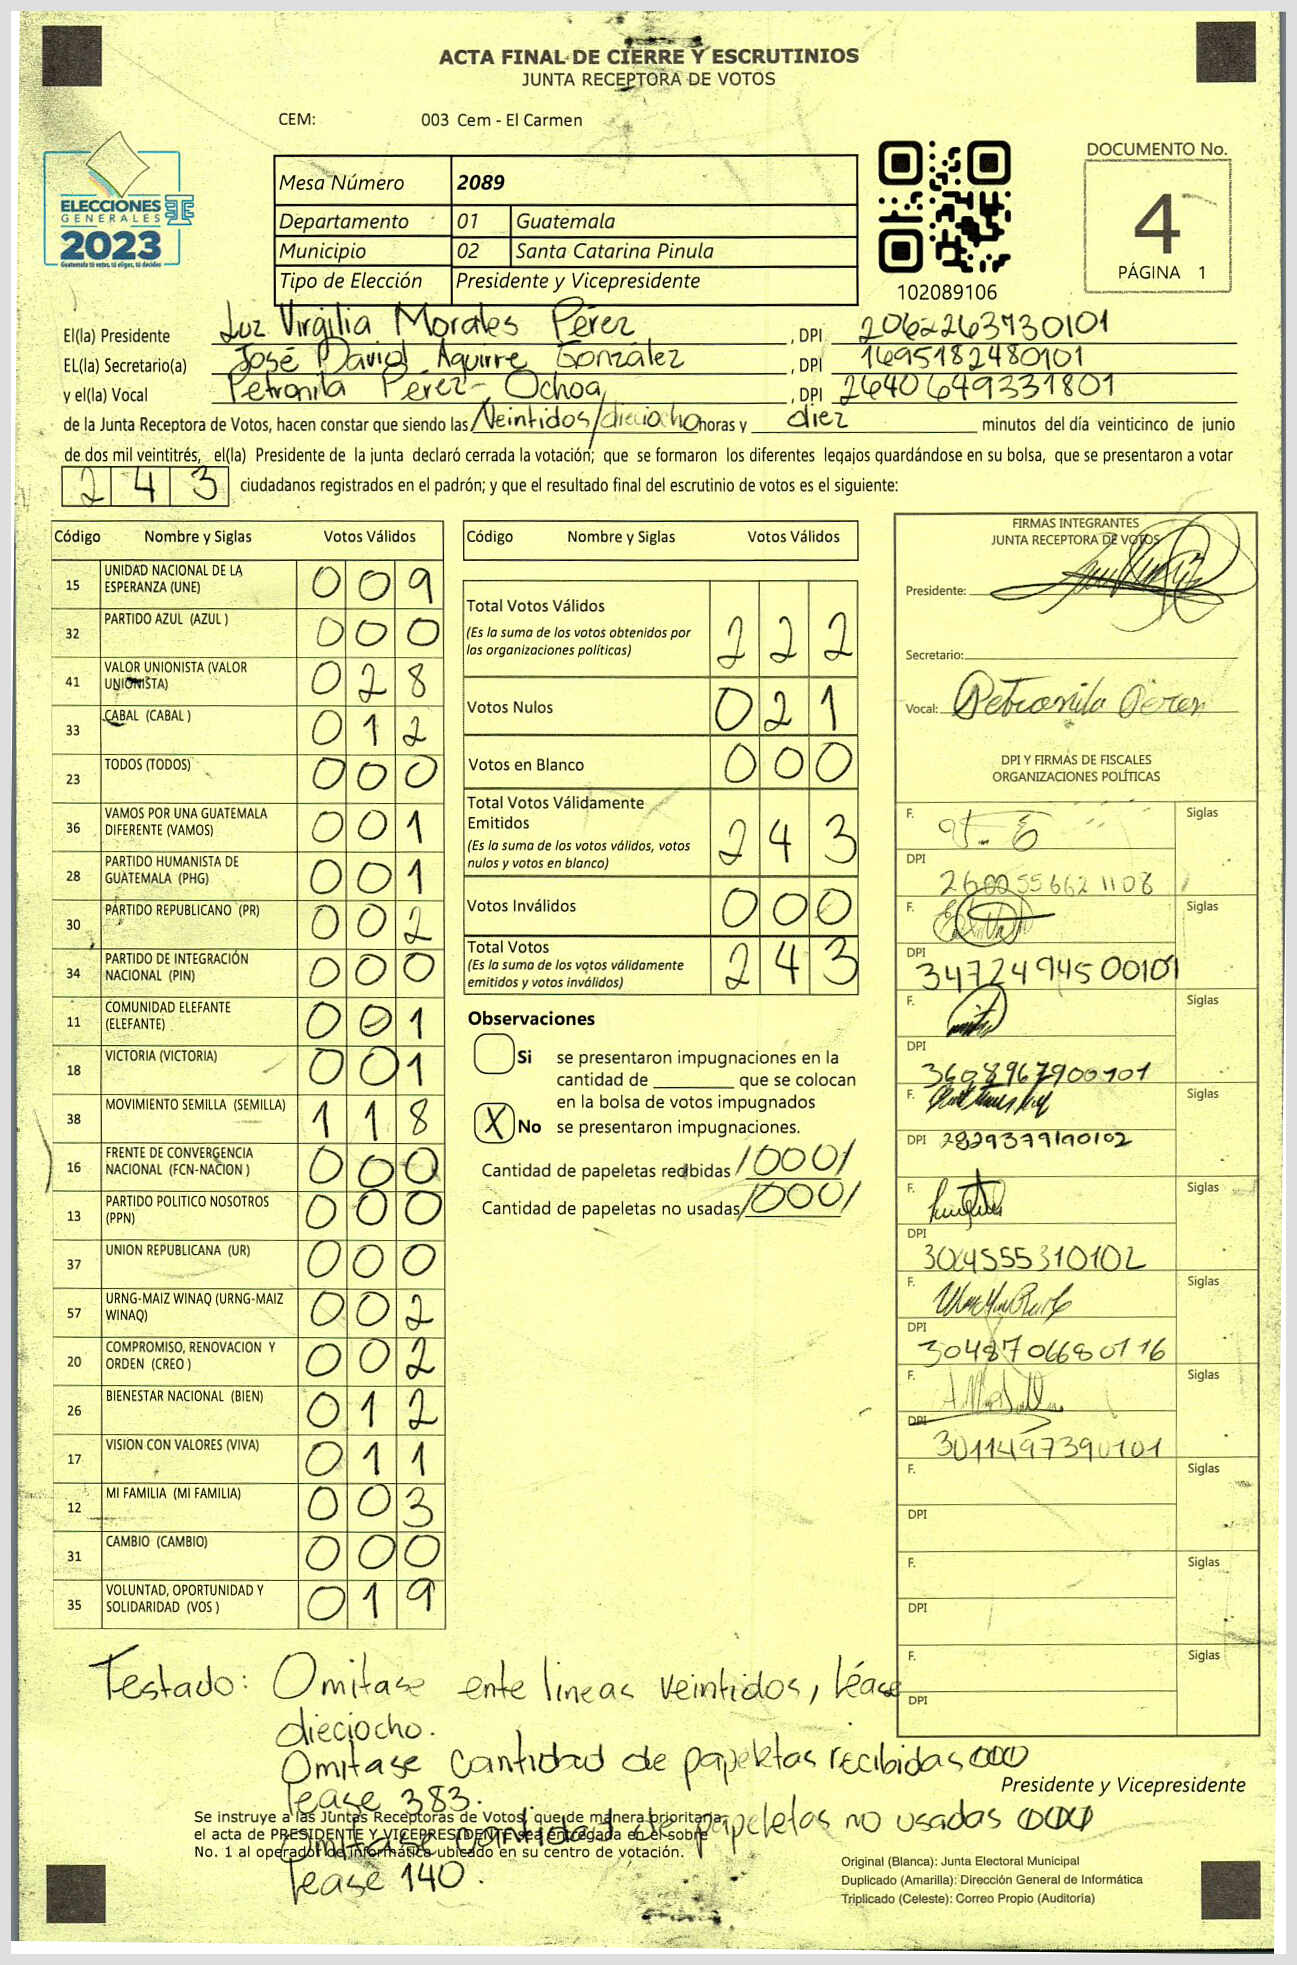 ACTA FINAL DE CIERRE Y ESCRUTINIOS
JUNTA RECEPTORA DE VOTOS
CEM: 003 Cem - El Carmen
ELECCIONES
GENERALES
2023
Guatemala tú votas, tú eliges, tú decides
Mesa Número 2089
Departamento 01 Guatemala
Municipio 02 Santa Catarina Pinula
Tipo de Elección Presidente y Vicepresidente
102089106
DOCUMENTO No.
4
PÁGINA 1
El(la) Presidente Luz Virgilia Morales Pérez, DPI 2062263730101
EL(la) Secretario(a) José David Aguirre González, DPI 1695182480101
y el(la) Vocal Petronila Pérez Ochoa, DPI 2640649331801
de la Junta Receptora de Votos, hacen constar que siendo las Veintidos/dieciocho horas y diez minutos del día veinticinco de junio
de dos mil veintitrés, el(la) Presidente de la junta declaró cerrada la votación; que se formaron los diferentes legajos guardándose en su bolsa, que se presentaron a votar
243 ciudadanos registrados en el padrón; y que el resultado final del escrutinio de votos es el siguiente:
Código Nombre y Siglas Votos Válidos
15 UNIDAD NACIONAL DE LA ESPERANZA (UNE) 009
32 PARTIDO AZUL (AZUL ) 000
41 VALOR UNIONISTA (VALOR UNIONISTA) 028
33 CABAL (CABAL ) 012
23 TODOS (TODOS) 000
36 VAMOS POR UNA GUATEMALA DIFERENTE (VAMOS) 001
28 PARTIDO HUMANISTA DE GUATEMALA (PHG) 001
30 PARTIDO REPUBLICANO (PR) 002
34 PARTIDO DE INTEGRACIÓN NACIONAL (PIN) 000
11 COMUNIDAD ELEFANTE (ELEFANTE) 001
18 VICTORIA (VICTORIA) 001
38 MOVIMIENTO SEMILLA (SEMILLA) 118
16 FRENTE DE CONVERGENCIA NACIONAL (FCN-NACION ) 000
13 PARTIDO POLITICO NOSOTROS (PPN) 000
37 UNION REPUBLICANA (UR) 000
57 URNG-MAIZ WINAQ (URNG-MAIZ WINAQ) 002
20 COMPROMISO, RENOVACION Y ORDEN (CREO ) 002
26 BIENESTAR NACIONAL (BIEN) 012
17 VISION CON VALORES (VIVA) 011
12 MI FAMILIA (MI FAMILIA) 003
31 CAMBIO (CAMBIO) 000
35 VOLUNTAD, OPORTUNIDAD Y SOLIDARIDAD (VOS ) 019
Código Nombre y Siglas Votos Válidos
Total Votos Válidos 222
(Es la suma de los votos obtenidos por
las organizaciones políticas)
Votos Nulos 021
Votos en Blanco 000
Total Votos Válidamente
Emitidos 243
(Es la suma de los votos válidos, votos
nulos y votos en blanco)
Votos Inválidos 000
Total Votos 243
(Es la suma de los votos válidamente
emitidos y votos inválidos)
Observaciones
Si se presentaron impugnaciones en la
cantidad de ________ que se colocan
en la bolsa de votos impugnados
X No se presentaron impugnaciones.
Cantidad de papeletas recibidas /000/
Cantidad de papeletas no usadas /000/
FIRMAS INTEGRANTES
JUNTA RECEPTORA DE VOTOS
Presidente:
Secretario:
Vocal: Petronila Pérez
DPI Y FIRMAS DE FISCALES
ORGANIZACIONES POLÍTICAS
F. Siglas
DPI 2600255662 1108
F. Siglas
DPI 3472494500101
F. Siglas
DPI 3608967900101
F.
DPI 2829379190102
F. Siglas
DPI 3045555310102
F. Siglas
DPI 3048706680116
F. Siglas
DPI 3011497390101
F. Siglas
DPI
F. Siglas
DPI
F. Siglas
DPI
Testado: Omitase ente lineas veintidos, léase
dieciocho.
Omitase cantidad de papeletas recibidas 000
lease 383.
Presidente y Vicepresidente
Omitase cantidad de papeletas no usadas 000
lease 140.
Se instruye a las Juntas Receptoras de Votos, que de manera prioritaria,
el acta de PRESIDENTE Y VICEPRESIDENTE sea entregada en el sobre
No. 1 al operador de informática ubicado en su centro de votación.
Original (Blanca): Junta Electoral Municipal
Duplicado (Amarilla): Dirección General de Informática
Triplicado (Celeste): Correo Propio (Auditoría)